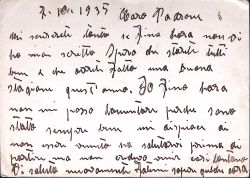 7. 1935 Caro Padrone
Mi scuserete tanto se fino hora non vi
ho mai scritto Spero che starete tutti
bene e che avrete fatto una buona
stagione quest'anno. Io fino hora
non mi posso lamentare perche sono
stato sempre bene mi dispiace di
non esser venuto ha salutarvi prima di
partire ma non credevo andare così lontano
Vi saluto nuovamente Saluti sopra questa carta